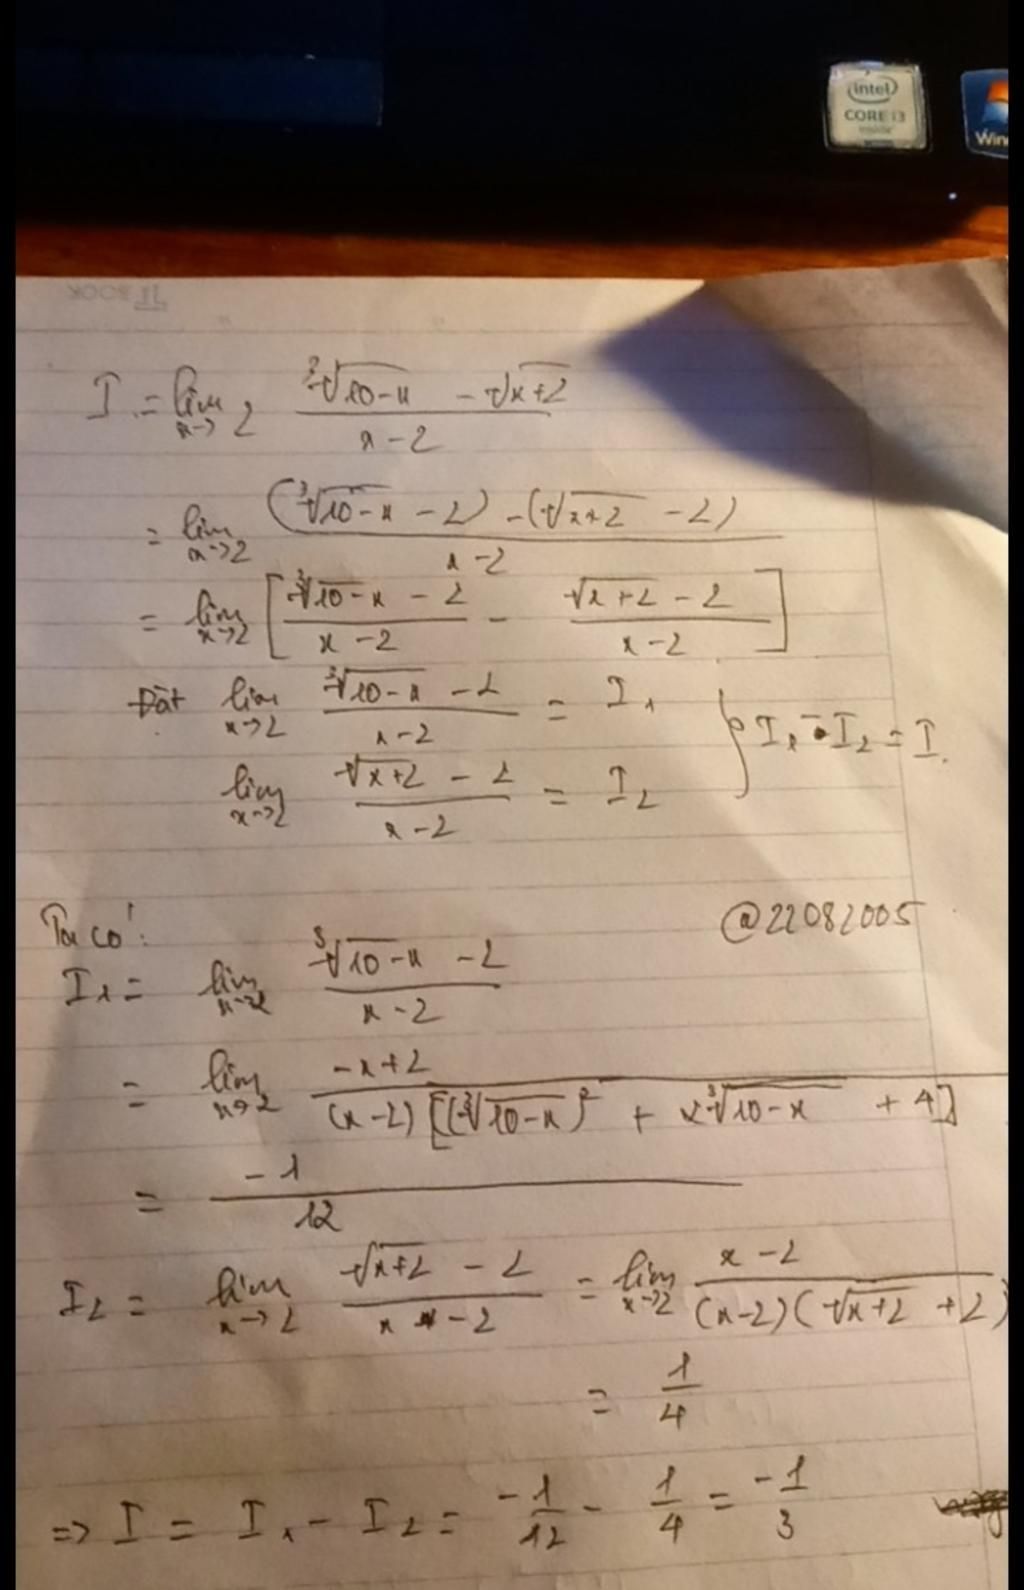 intel
CORE i3
inside
Win
I = lim x→2 (∛(10-x) - √(x+2)) / (x-2)
= lim x→2 ((∛(10-x) - 2) - (√(x+2) - 2)) / (x-2)
= lim x→2 [ (∛(10-x) - 2) / (x-2) - (√(x+2) - 2) / (x-2) ]
Đặt lim x→2 (∛(10-x) - 2) / (x-2) = I₁
lim x→2 (√(x+2) - 2) / (x-2) = I₂
} I₁ - I₂ = I.
@22082005
Ta có:
I₁ = lim x→2 (∛(10-x) - 2) / (x-2)
= lim x→2 (-x+2) / ((x-2)[(∛(10-x))² + 2∛(10-x) + 4])
= -1/12
I₂ = lim x→2 (√(x+2) - 2) / (x-2) = lim x→2 (x-2) / ((x-2)(√(x+2) + 2))
= 1/4
=> I = I₁ - I₂ = -1/12 - 1/4 = -1/3